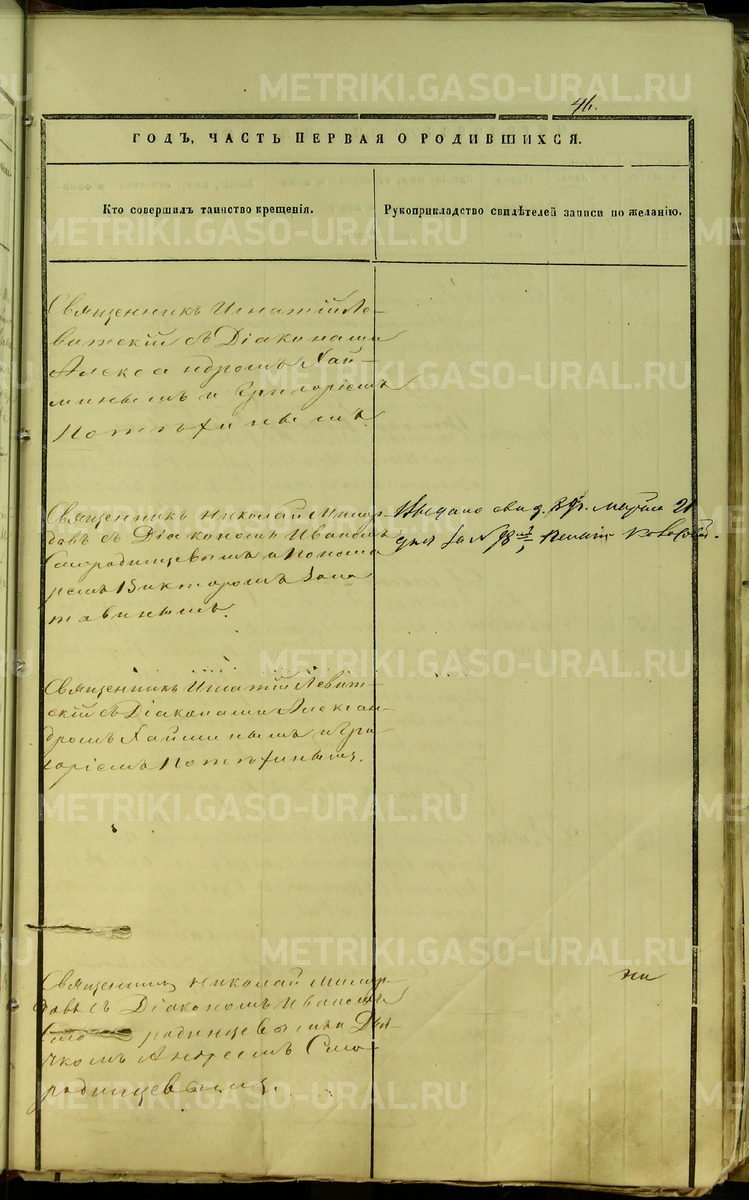 46.
ГОДЪ, ЧАСТЬ ПЕРВАЯ О РОДИВШИХСЯ.
Кто совершилъ таинство крещенія.
Рукоприкладство свидѣтелей записи по желанію.
Священникъ Игнатій Ле-
витскій съ Діаконами
Александромъ Хай-
минымъ и Григоріемъ
Потѣхинымъ.
Священникъ Николай
съ Діакономъ Иваномъ
Смородинцевымъ и Понома
ремъ Викторомъ
Выдано свид.
Священникъ Игнатій Левит-
скій съ Діаконами Алексан-
дромъ Хайминымъ и Гри-
горіемъ Потѣхинымъ.
Священникъ Николай
съ Діакономъ Иваномъ
Смородинцевымъ и Дья-
чкомъ Андреемъ Смо-
родинцевымъ.
METRIKI.GASO-URAL.RU